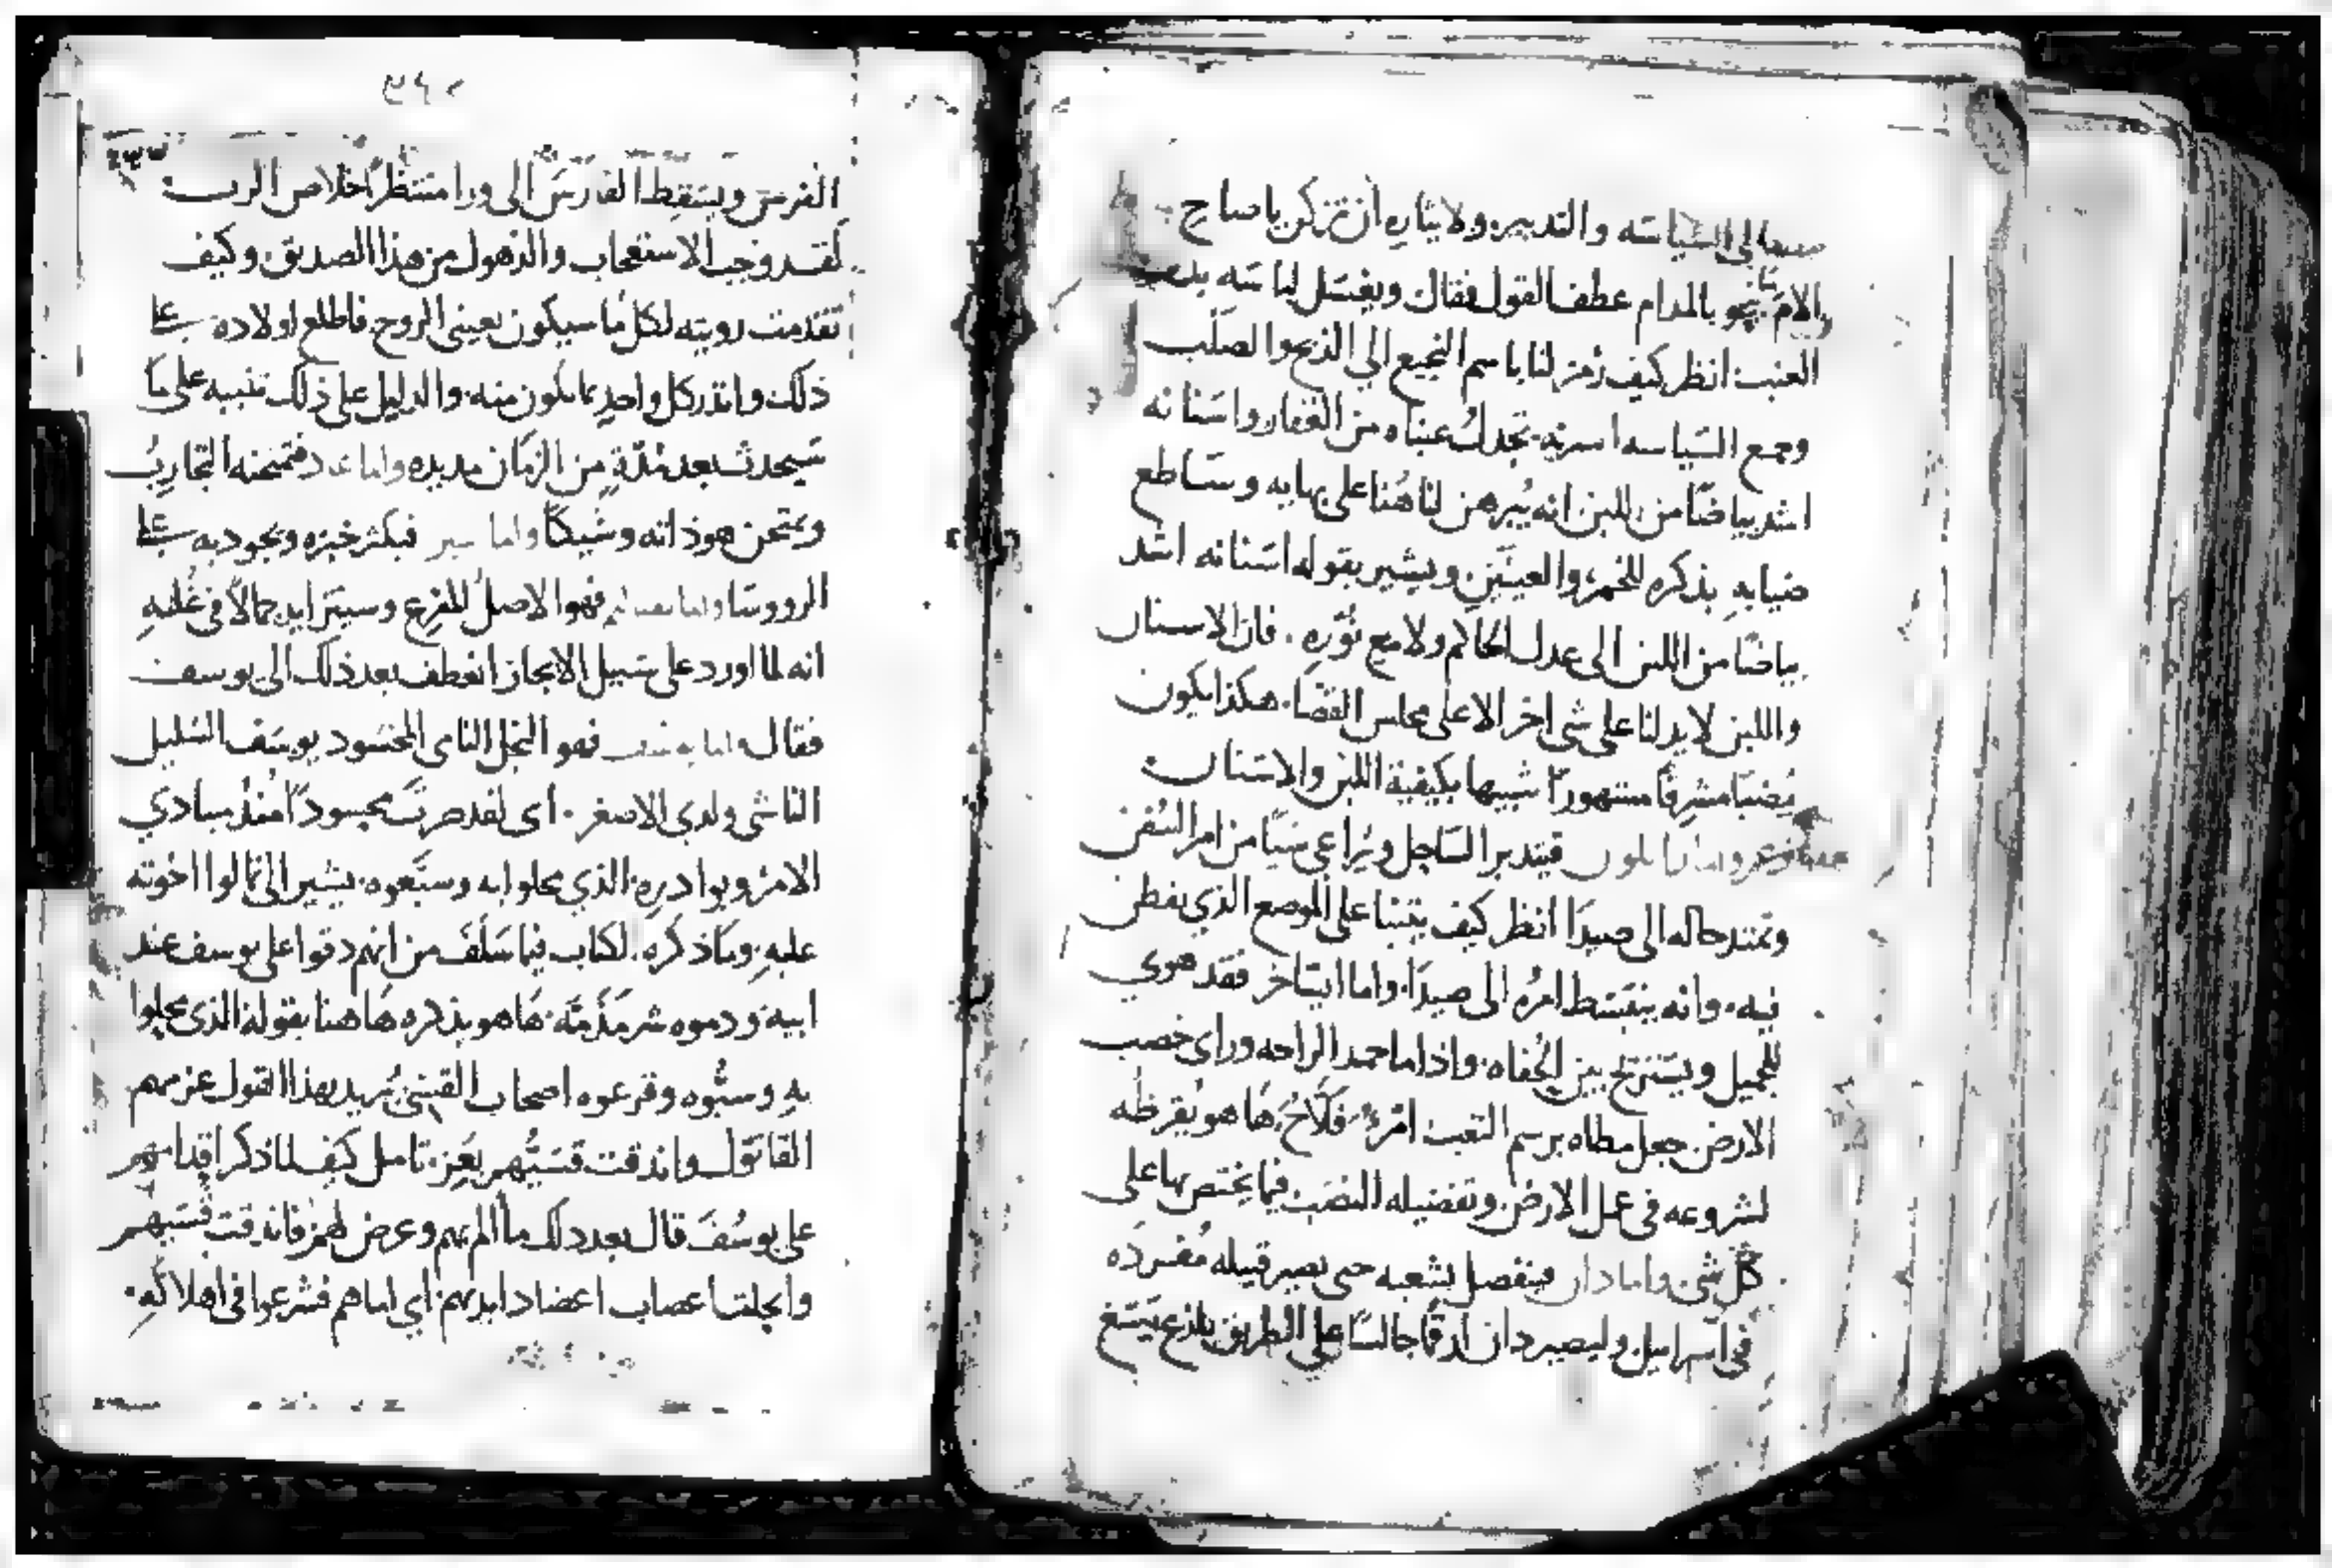 الى السياسه والتدبير ولايثاره ان تزكن ياصاح
الام نحو بالمدام عطف القول فقال ويغسل لباسه بدم
العنب انظر كيف رمز لنا باسم النجيع الي الذبح والصلب
وجمع السياسه اسرته تجدك عيناه من العقار واسنانه
اشد بياضًا من اللبن انه يبرهن لنا هنا على بهايه وساطع
ضيايه بذكره للخمر والعينين ويشير بقوله اسنانه اشد
بياضًا من اللبن الى عدل الحاكم ولامع نوره. فان الاسنان
واللبن لا يدلنا على شي اخر الا على مجلس القضا. هكذا يكون
مضيًا مشرقًا مشهورًا شبيها بكيفية اللبن والاسنان
فيتدبر الساحل ويراعي شيًا من امر السفن
وتمتد حاله الى صيدا انظر كيف ينبنا على الموضع الذي يقطن
فيه. وانه ينبسط امره الى صيدا. واما ايساخر فقد هوي
للجميل ويستنزح بين الحفاه. واذا ما حمد الراحه وراى خصب
الارض جعل مطاه برسم التعب امرء فلاح. ها هو يقرظه
لشروعه في عمل الارض وتفضيله النصب فيما يختص بها على
كل شي واما دان فينفصل بشعبه حتى يصير قبيله مفرده
في اسراييل وليصير دان ارقمًا جالسًا على الطريق يلذع
٢٤٣
الفرس ويسقط الفارس الى ورا منتظرًا خلاص الرب
لقد وجب الاستعجاب والذهول من هذا الصديق وكيف
تقدمت رويته لكل ما سيكون بعيني الروح فاطلع اولاده على
ذلك وانذر كل واحد بما يكون منه. والدليل على ذلك تنبيه على ما
سيحدث بعد مدة من الزمان مديده واما عاد فتمتحنه التجارب
ويمتحن هو ذاته وشيكًا واما سير فيكثر خبزه ويجود به على
الرووسا واما نفتاليم فهو الاصل المفرع وسيتزايد جمالًا في غلته
انه لما اورد على سبيل الايجاز انعطف بعد ذلك الى يوسف
فقال واما يوسف فهو النجل النامى المحسود يوسف السليل
الناشى ولدي الاصغر. اى لقد صرت محسودًا منذ مبادي
الامر وبوادره. الذي محلوا به وسبعوه. يشير الى تمالوا اخوته
عليه. وما ذكره الكتاب فيما سلف من انهم دقوا على يوسف عند
ابيه. ودموه شر مذمه. ها هو يذكره ها هنا بقوله الذى محلوا
به وسبوه وقرعوه اصحاب القسي يريد بهذا القول عزمهم
القاتول واندقت قسيهم بعز. تامل كيف لما ذكر اقدامهم
على يوسف قال بعد ذلك ما الم بهم وعرض لهم فاندقت قسيهم
وانحلت اعصاب اعضاد ايديهم. اي لما هم شرعوا فى اهلاكه.